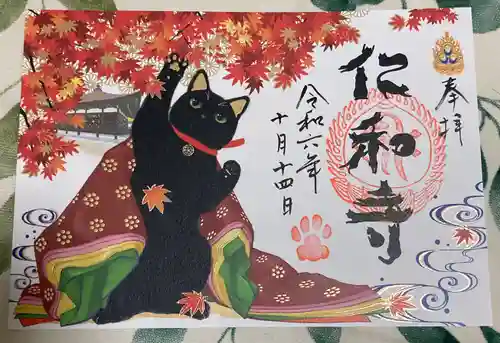 奉拝
仁和寺
令和六年
十月十四日